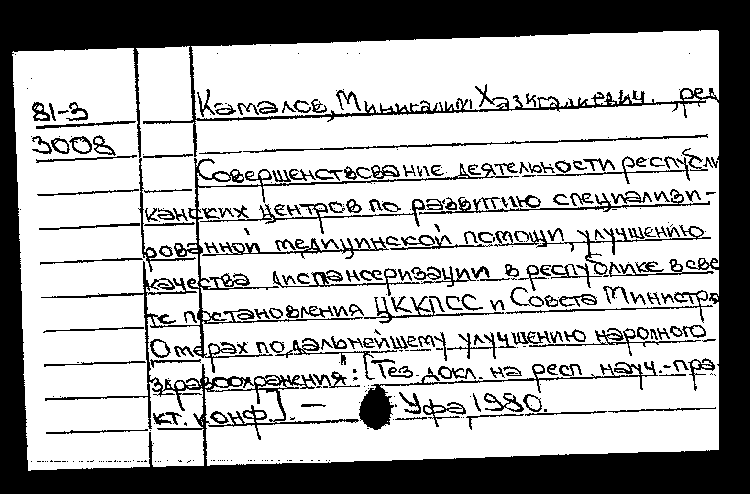 81-3
3008
Камалов, Минигалим Хазигалиевич., ред
Совершенствование деятельности республи
канских центров по развитию специализи-
рованной медицинской помощи, улучшению
качества диспансеризации в республике в све
те постановления ЦК КПСС и Совета Министро
"О мерах по дальнейшему улучшению народного
здравоохранения": [Тез. докл. на респ. науч.-пра
кт. конф]. — Уфа, 1980.